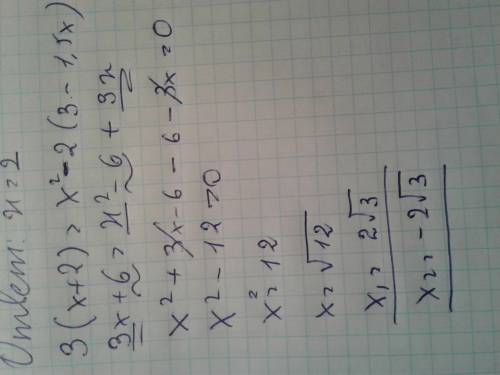 Ответ: x = 2
3(x+2) = x² - 2(3 - 1,5x)
3x + 6 = x² - 6 + 3x
x² + 3x - 6 - 6 - 3x = 0
x² - 12 = 0
x² = 12
x = √12
x₁ = 2√3
x₂ = -2√3